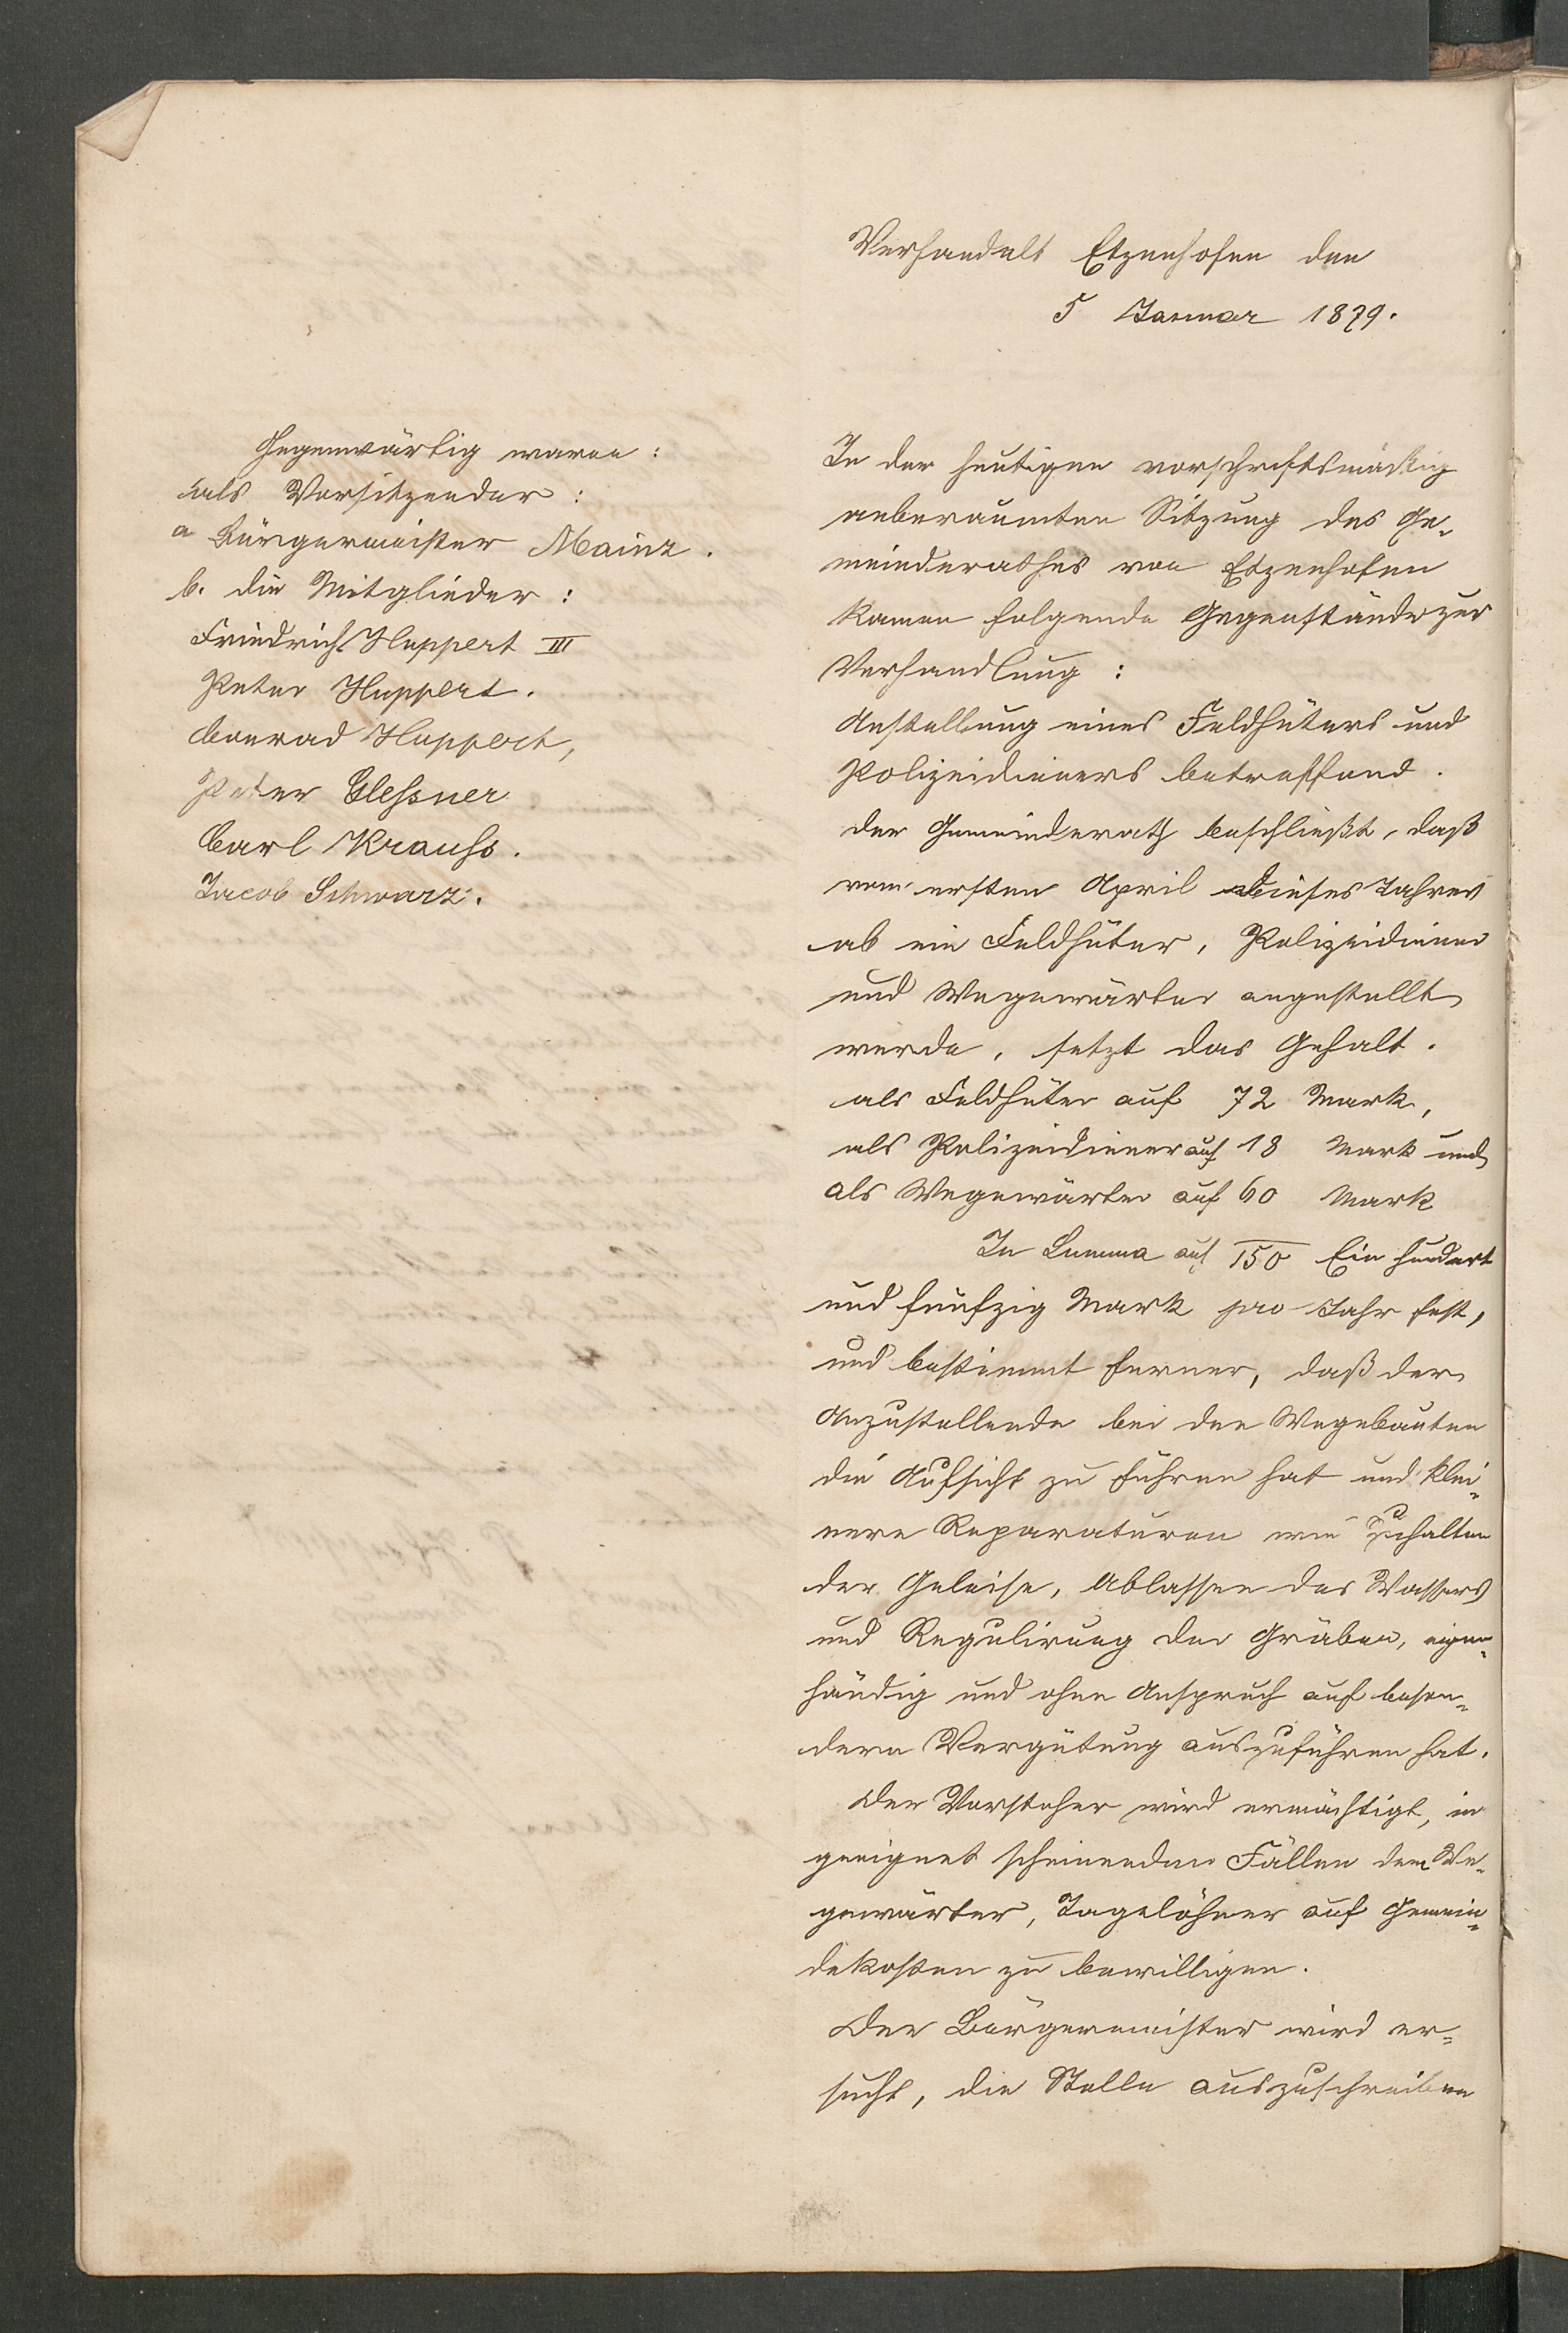 Verhandelt Etzenhofen den
5 Januar 1879.
Gegenwärtig waren:
als Vorsitzender:
a Bürgermeister Mainz.
b. die Mitglieder:
Friedrich Huppert III
Peter Huppert.
Conrad Huppert,
Peter Glessner
Carl Krauss.
Jacob Schwarz.
In der heutigen vorschriftsmäßig
anberaumten Sitzung des Ge-
meinderathes von Etzenhofen
kamen folgende Gegenstände zur
Verhandlung:
Anstellung eines Feldhüters und
Polizeidieners betreffend.
der Gemeinderath beschließt, daß
vom ersten April dieses Jahres
ab ein Feldhüter, Polizeidiener
und Wegewärter angestellt
werde, setzt das Gehalt.
als Feldhüter auf 72 Mark,
als Polizeidiener auf 18 Mark und
als Wegewärter auf 60 Mark
In Summa auf 150 Ein hundert
und fünfzig Mark pro Jahr fest,
und bestimmt ferner, daß der
Anzustellende bei den Wegebauten
die Aufsicht zu führen hat und klei-
nere Reparaturen wie Zuhalten
der Geleise, Ablassen des Wassers
und Regulirung der Gräben, eigen-
händig und ohne Anspruch auf beson-
dere Vergütung auszuführen hat.
Der Vorsteher wird ermächtigt, in
geeignet scheinenden Fällen dem We-
gewärter, Tagelöhner auf Gemein-
dekosten zu bewilligen.
Der Bürgermeister wird er-
sucht, die Stelle auszuschreiben